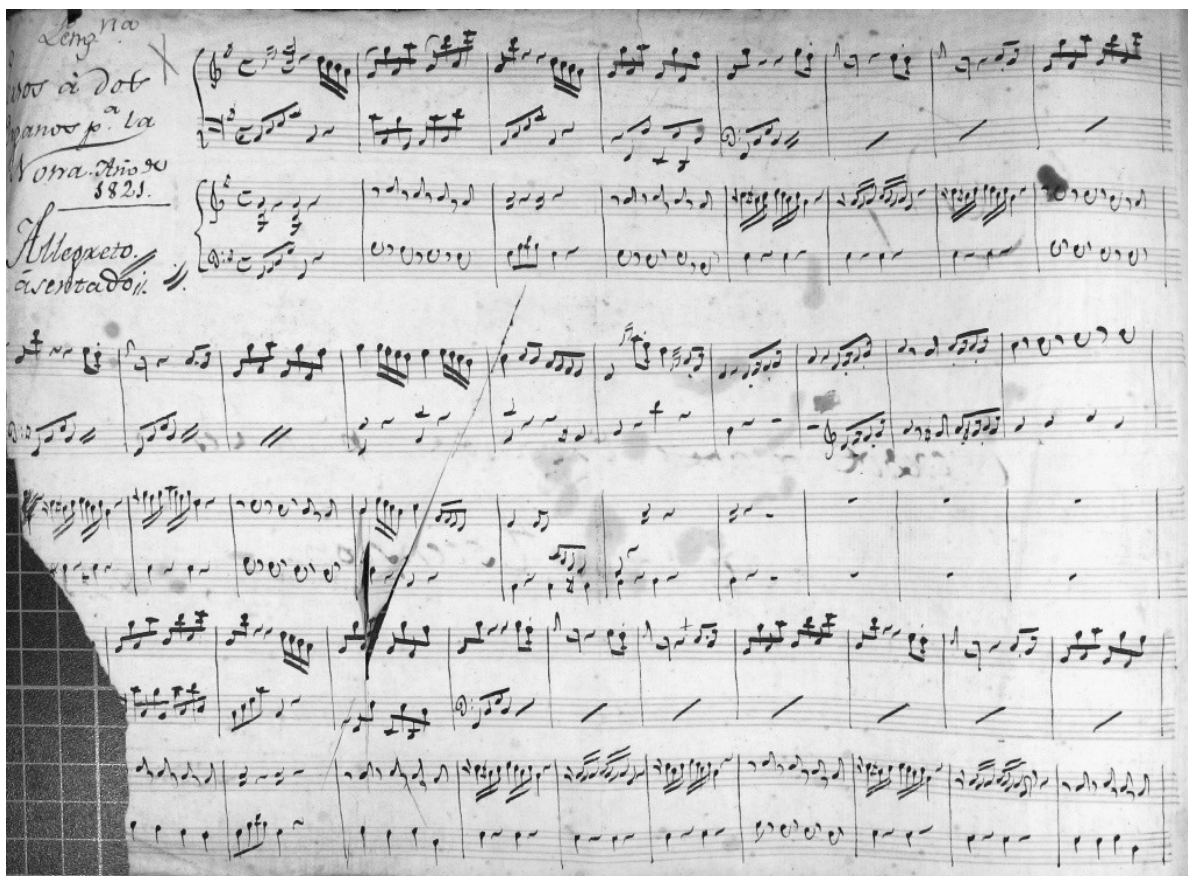 vos à dos
ganos p.ª la
Nona. Año de
1821.
Allegreto.
asentado